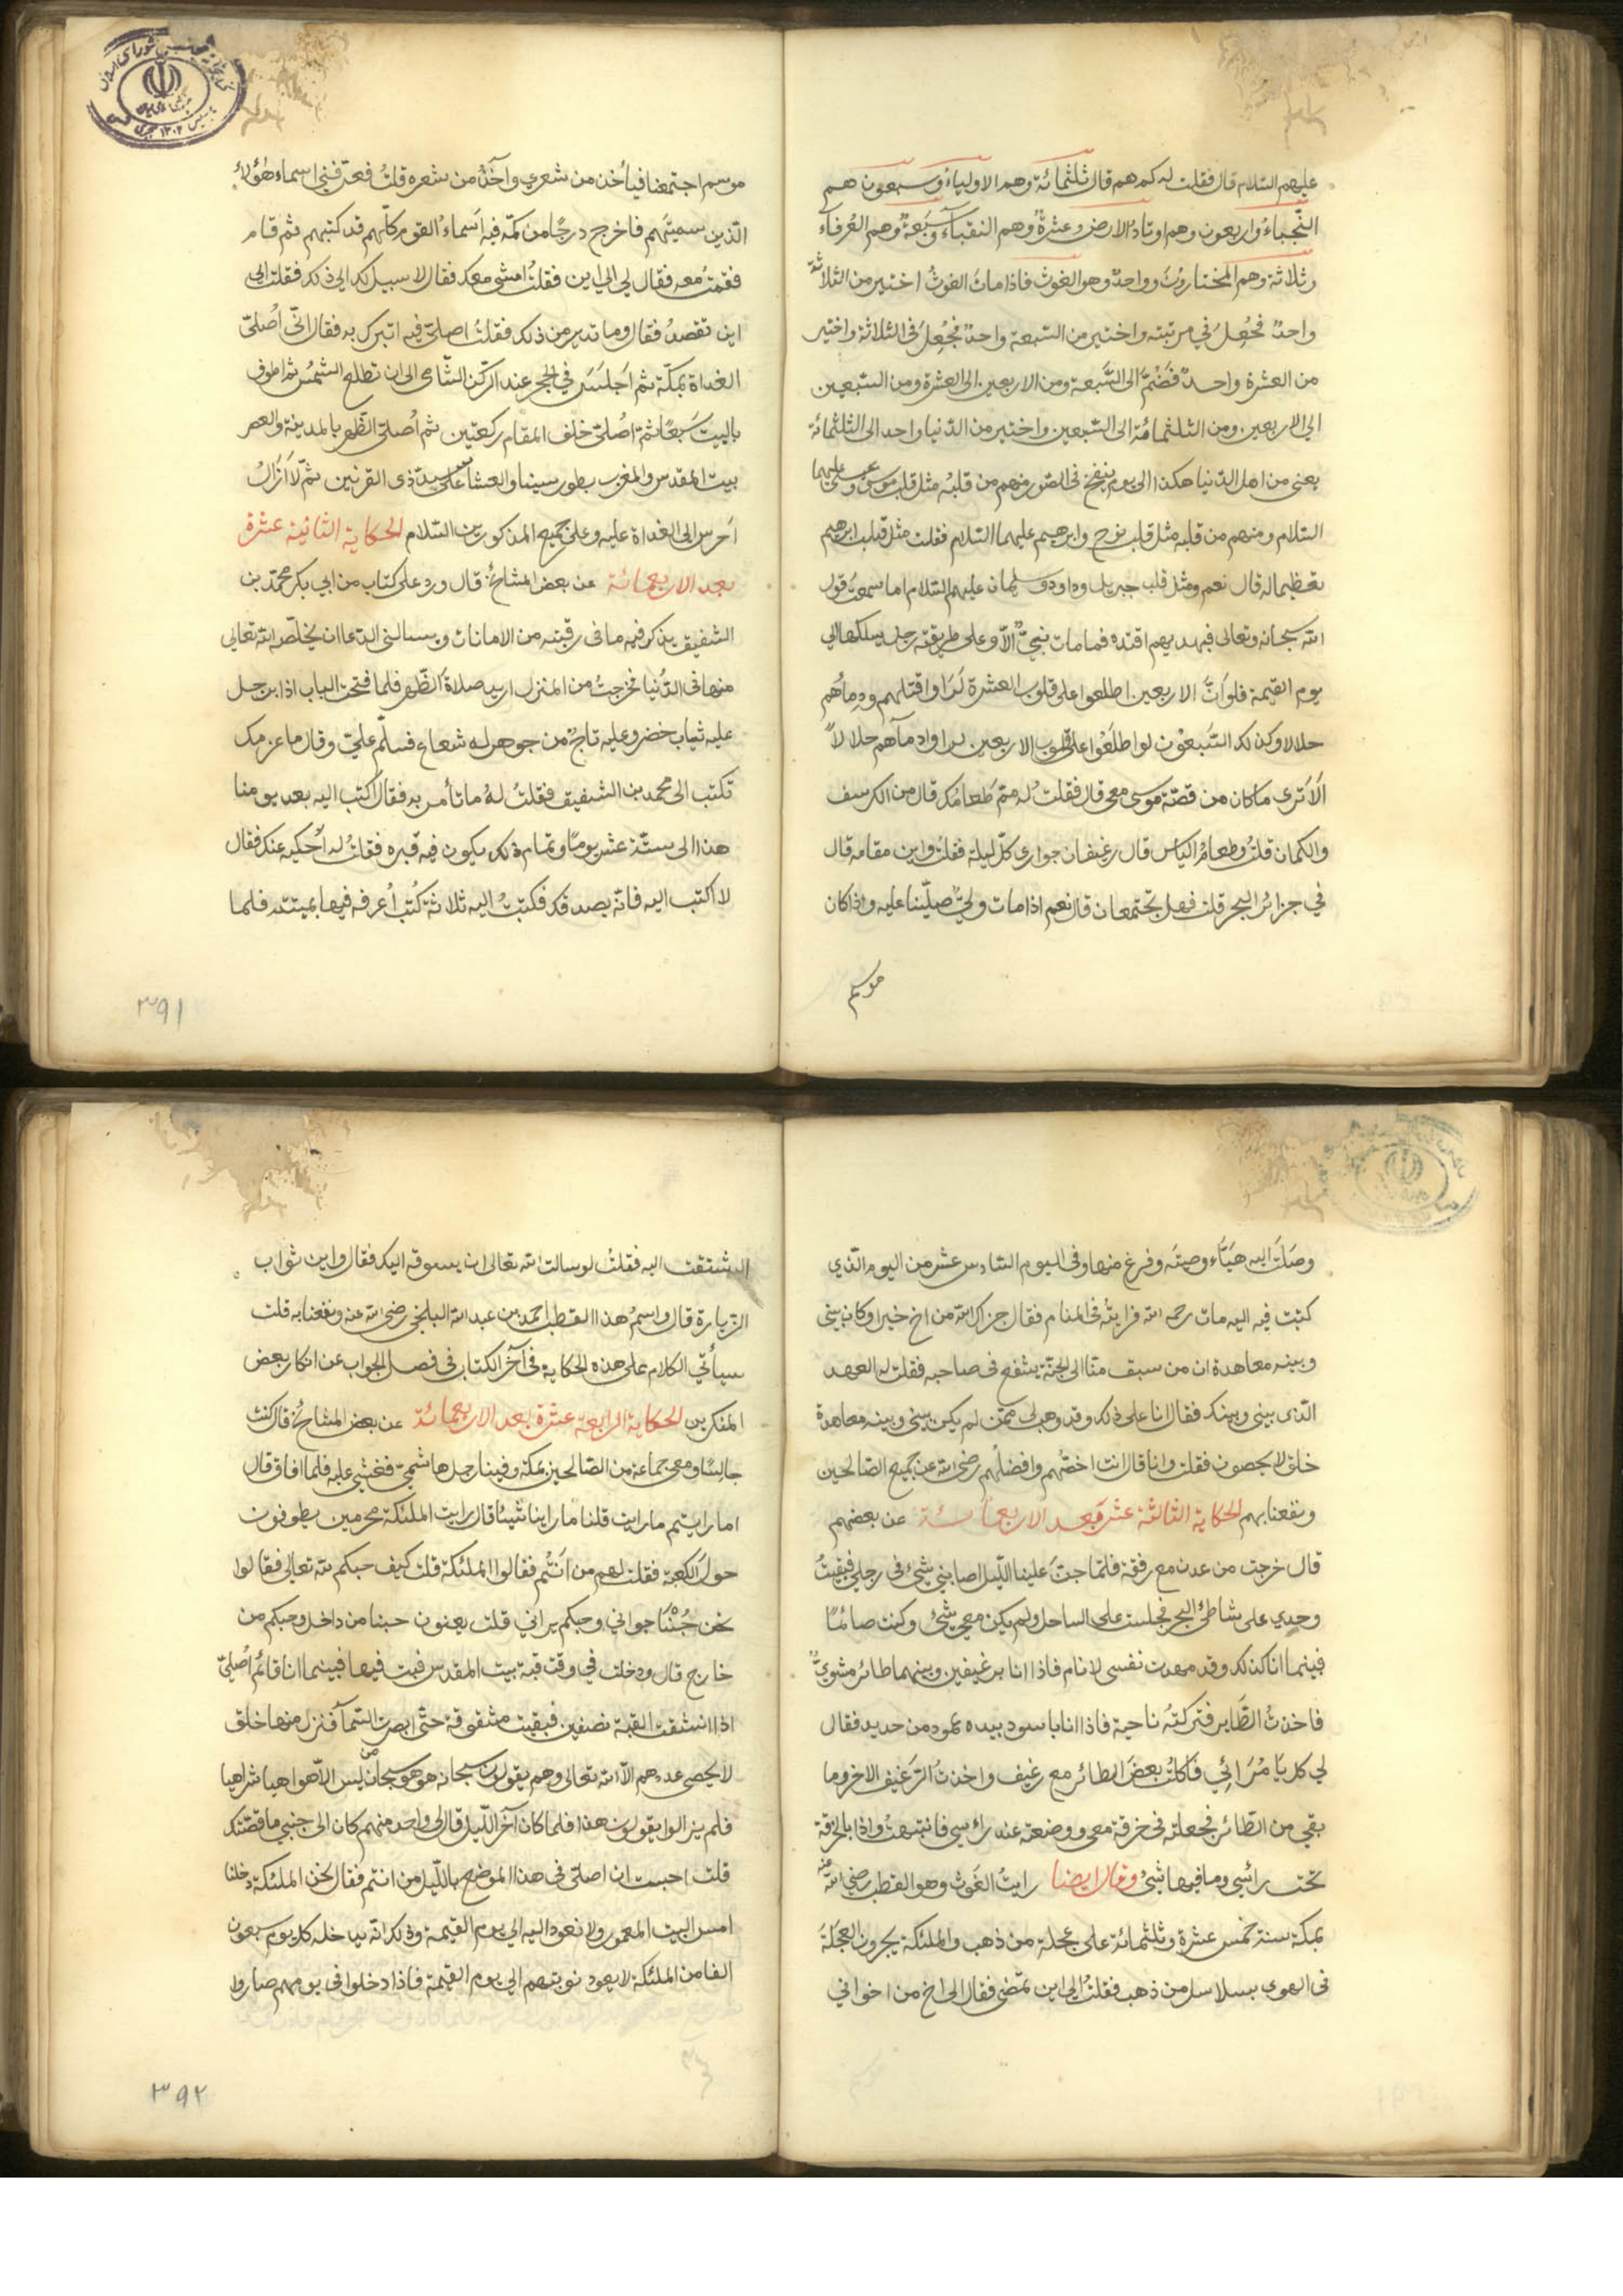 عليهم السّلام قال فقلت له كم هم قال ثلثمائة وهم الاولياء وسبعون هم
النّجباءُ واربعون وهم اوتادُ الارض عشرةٌ وهم النقباء وسَبَعةٌ وهم العُرفاءُ
وثلاثة وهم المختارونَ وواحدٌ وهو الغوث فاذا ماتَ الغوثُ اختير من الثلاثة
واحدٌ فجُعِلَ في مرتبته واختير من السّبعة واحدٌ فجُعِلَ في الثلاثة واختير
من العشرة واحدٌ فَضُمَّ الى السَّبعة ومن الاربعين الى العشرة ومن السّبعين
الى الاربعين ومن الثلثمائة الى السّبعين واختير من الدّنيا واحد الى الثلثمائة
يعنى من اهل الدّنيا هكذا الى يوم ينفخ فى الصّور منهم من قلبُه مثل قلب موسى وعيسى عليهما
السّلام ومنهم من قلبه مثل قلب نوح وابرهيم عليهما السّلام فقلت مثل قلب ابرهيم
تعظيما له قال نعم ومثل قلب جبريل وداود وسليمان عليهم السّلام اما سمعتَ قول
الله سبحانه وتعالى فبهديهم اقتده فما مات نبيٌّ الّا وعلى طريقته رجل يسلكها الى
يوم القيمة فلو اَنَّ الاربعين اطلعوا على قلوب العشرة لَرَاوا قتلهم ودِمأهم
حلالا وكذلك السّبعُون لو اطلَعُوا على قلوب الاربعين لراوا دمآهم حلالاً
اَلاَ ترى ما كان من قصّة موسى معى قال فقلتُ له مِمّ طَعامُك قال من الكرسف
والكمان قلتُ وطعامُ الياس قال رغيفان جوارى كلّ ليلة فقلتُ واين مقامه قال
في جزائر البحر قلت فهل تجتمعان قال نعم اذا مات وليٌّ صلّينا عليه واذا كان
موسم
موسم اجتمعنا فيأخذ من شعري وآخذُ من شعره قلتُ فعرّفنى اسماء هؤلاءِ
الّذين سميتَهم فاخرج درجًا من كمّه فيه اَسماءُ القوم كلّهم قد كتبهم ثم قام
فقمتُ معه فقال لي الى اين فقلتُ امشى معك فقال لا سبيل لك الى ذلك فقلت الى
اين تقصدُ فقال وما تدير من ذلك فقلتُ اصلىّ فيه اتبرك به فقال انّى اُصلىّ
الغداة بمكّة ثم اَجلسُ في الحجر عند الركن الشّامى الى ان تطلع الشمسُ ثم اطوف
بالبيت سَبعًا ثمّ اُصلىّ خلف المقام ركعتين ثم اُصلىّ الظّهر بالمدينة والعصر
بيت المقدس والمغرب بطور سيناء والعشاءَ على سدّ ذى القرنين ثمّ لا اَزالُ
اَحرس الى الغداة عليه وعلى جميع المذكورين السّلام الحكاية الثانية عشرة
بعد الاربعمائة عن بعض المشائخ قال ورد على كتاب من ابى بكر محمّد بن
الشفيق يذكر فيه ما فى رقبته من الامانات ويسالنى الدّعا ان يخلّصه الله تعالى
منها فى الدُّنيا فخرجتُ من المنزل اريد صلاةَ الظّهر فلما فتحت الباب اذا برجل
عليه ثياب خضر وعليه تاجٌ من جوهر له شعاع فسلّم علىّ وقال ما عزمك
تكتب الى محمد بن الشفيق فقلتُ لهُ ما تأمر به فقال اكتب اليه بعد يومنا
هذا الى ستّة عشر يومًا وتمام ذلك يكون فيه قبره فقلتُ له اُحكيه عنك فقال
لا اكتب اليه فانّه يصدقك فكتبتُ اليه ثلاثة كُتُب اُعرفه فيها بميتته فلما
۳۹۱
وصَلَتْ اليه هيّاَء وصيّتَه وفرغ منها وفى اليوم السّادس عشر من اليوم الّذي
كتبْت فيه اليه مات رحمه الله فرايتُه فى المنام فقال جزاك الله من اخ خيرا وكان بينى
وبينه معاهدة ان من سبق منّا الى الجنّة يشفع فى صاحبه فقلت له العهد
الّذى بينى وبينك فقال انا على ذلك وقد وهب لى ممّن لم يكن بينى وبينه معاهدة
خلق لا يحصون فقلت وانا قال انت اخصّهم وافضلُهم رضى الله عن جميع الصّالحين
ونفعنا بهم الحكاية الثالثة عشر بعد الاربعمائة عن بعضهم
قال خرجت من عدن مع رفقة فلمّا جنّ علينا اللّيل اصابنى شئ فى رجلى فبقيتُ
وحدِي على شاطئ البحر فجلست على الساحل ولم يكن معي شئ وكنت صائمًا
فبينما انا كذلك وقد مهدت نفسى لانام فاذا انا برغيفين وبينهما طائر مشوىٌّ
فاخذتُ الطّاَير فتركته ناحية فاذا انا باسود بيده عمود من حديد فقال
لى كل يا مُرَائِي فاكلتُ بعضَ الطائر مع رغيف واخذتُ الرّغيف الاخر وما
بقي من الطّائر فجعلته فى خرقة معى ووضعته عند راسي فانتبهتُ واذا بالخرقة
تحت رأسى وما فيها شئٌ وقال ايضا رايتُ الغَوث وهو القطب رضى الله عنه
بمكّة سنة خمس عشرة وثلثمائة على عجلة من ذهب والملئكة يجرون العجلَةَ
فى الهوى بسلاسل من ذهب فقلتُ الى اين تمضى فقال الى اخ من اخوانى
اشتقت اليه فقلتُ لو سالت الله تعالى ان يسوقه اليك فقال واين ثواب
الزّيارة قال واسمُ هذا القطب احمد بن عبد الله البلخى رضى الله عنه ونفعنا به قلت
سيأتى الكلام على هذه الحكاية فى آخر الكتاب فى فصل الجواب عن انكار بعض
المنكرين الحكاية الرابعة عشرة بعد الاربعمائة عن بعض المشائخ قال كنت
جالسًا ومعى جماعة من الصّالحين بمكّة وفينا رجل هاشمىّ فغشى عليه فلما افاق قال
اما رايتم ما رايت قلنا ما راينا شيئًا قال رايت الملئكة محرمين يطوفون
حولَ الكعبة فقلت لهم من اَنتُم فقالوا الملئكة قلت كيف حبكم لله تعالى فقالوا
نحن حُبُّنا جوانى وحبكم برانى قلت يعنون حبنا من داخل وحبكم من
خارج قال ودخلت في وقت قبة بيت المقدس فبت فيها فبينما انا قائم اُصلىّ
اذا انشقت القبة نصفين فبقيت مشقوقة حتّى ابصرت السّمآ فنزل منها خلق
لا يحصى عددهم الّا الله تعالى وهم يقولون سبحانه هو هو سبحان من ليس الّا هو اهيا شراهيا
فلم يزالوا يقولون هذا فلما كان آخر اللّيل قال لى واحد منهم كان الى جنبى ما قصّتك
قلت احببت ان اصلّى فى هذا الموضع بالّليل من انتم فقال نحن الملئكة دخلنا
امس البيت المعمور ولا نعود اليه الى يوم القيمة وذلك انّه يدخله كل يوم سبعون
الفا من الملئكة لا يعود نوبتهم الى يوم القيمة فاذا دخلوا فى يومهم صاروا
۳۹۲